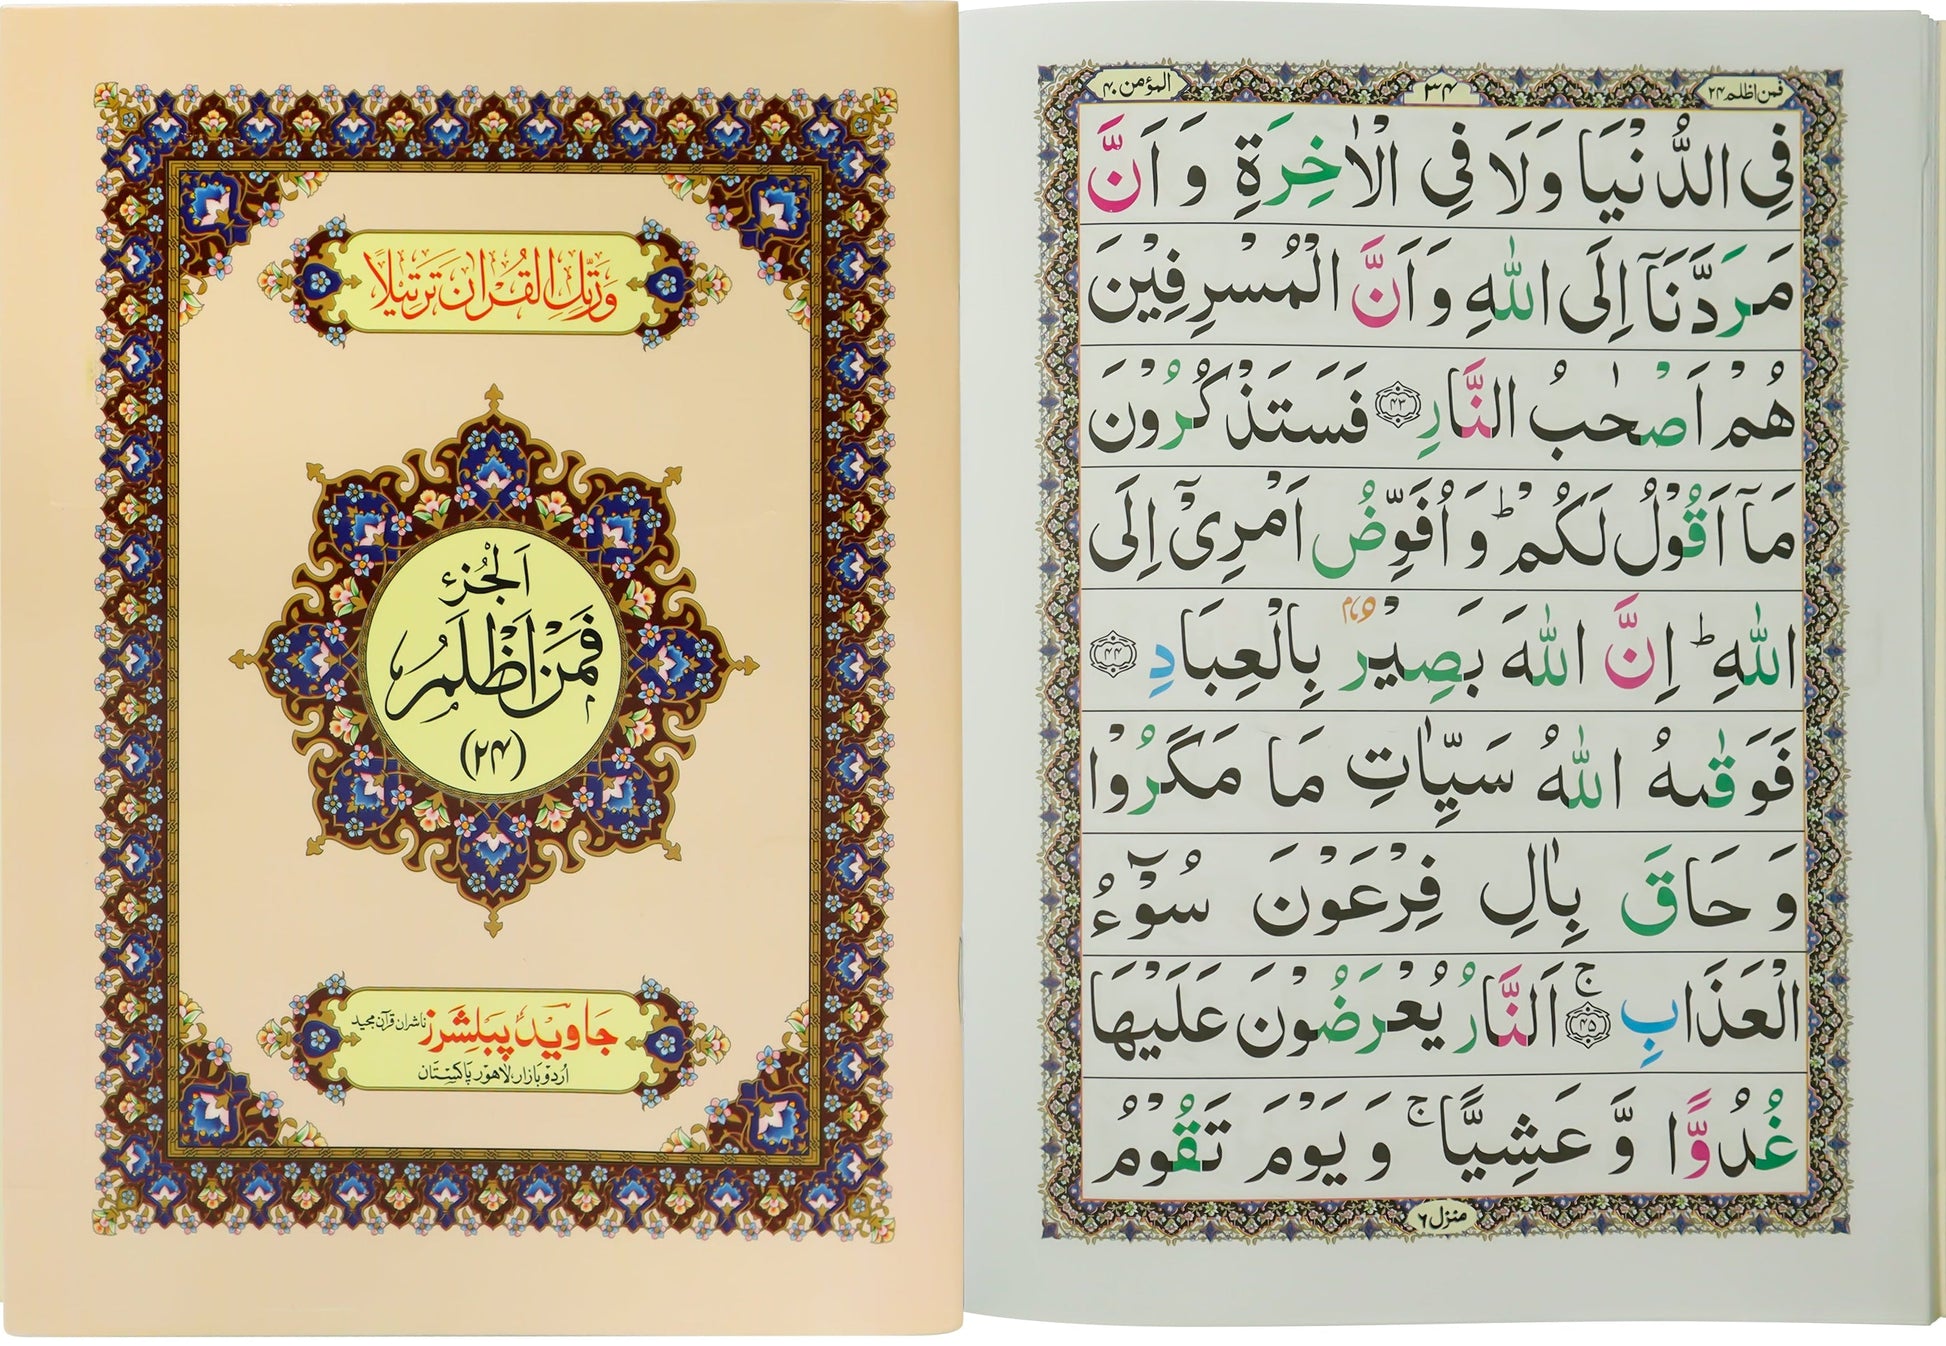 وَرَتِّلِ الْقُرْاٰنَ تَرْتِيْلًا
اَلْجُزْءُ
فَمَنْ اَظْلَمُ
(۲۴)
جَاوِید پَبلِشَرز ناشران قرآن مجید
اُردو بازار، لاہور پاکستان
فمن اظلم ۲۴ ۳۴ المؤمن ۴۰
فِی الدُّنْیَا وَلَا فِی الْاٰخِرَةِ وَ اَنَّ
مَرَدَّنَاۤ اِلَی اللّٰهِ وَ اَنَّ الْمُسْرِفِیْنَ
هُمْ اَصْحٰبُ النَّارِ ۴۳ فَسَتَذْكُرُوْنَ
مَاۤ اَقُوْلُ لَكُمْ ؕ وَ اُفَوِّضُ اَمْرِیْۤ اِلَی
اللّٰهِ ؕ اِنَّ اللّٰهَ بَصِیْرٌۢ بِالْعِبَادِ ۴۴
فَوَقٰىهُ اللّٰهُ سَیِّاٰتِ مَا مَكَرُوْا
وَ حَاقَ بِاٰلِ فِرْعَوْنَ سُوْٓءُ
الْعَذَابِ ۴۵ ۚ اَلنَّارُ یُعْرَضُوْنَ عَلَیْهَا
غُدُوًّا وَّ عَشِیًّا ۚ وَ یَوْمَ تَقُوْمُ
منزل ۶